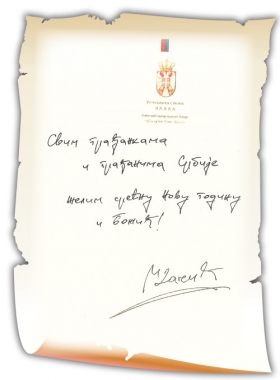 РЕПУБЛИКА СРБИЈА
ВЛАДА
Свим грађанкама
и грађанима Србије
желим срећну Нову годину
и Божић!